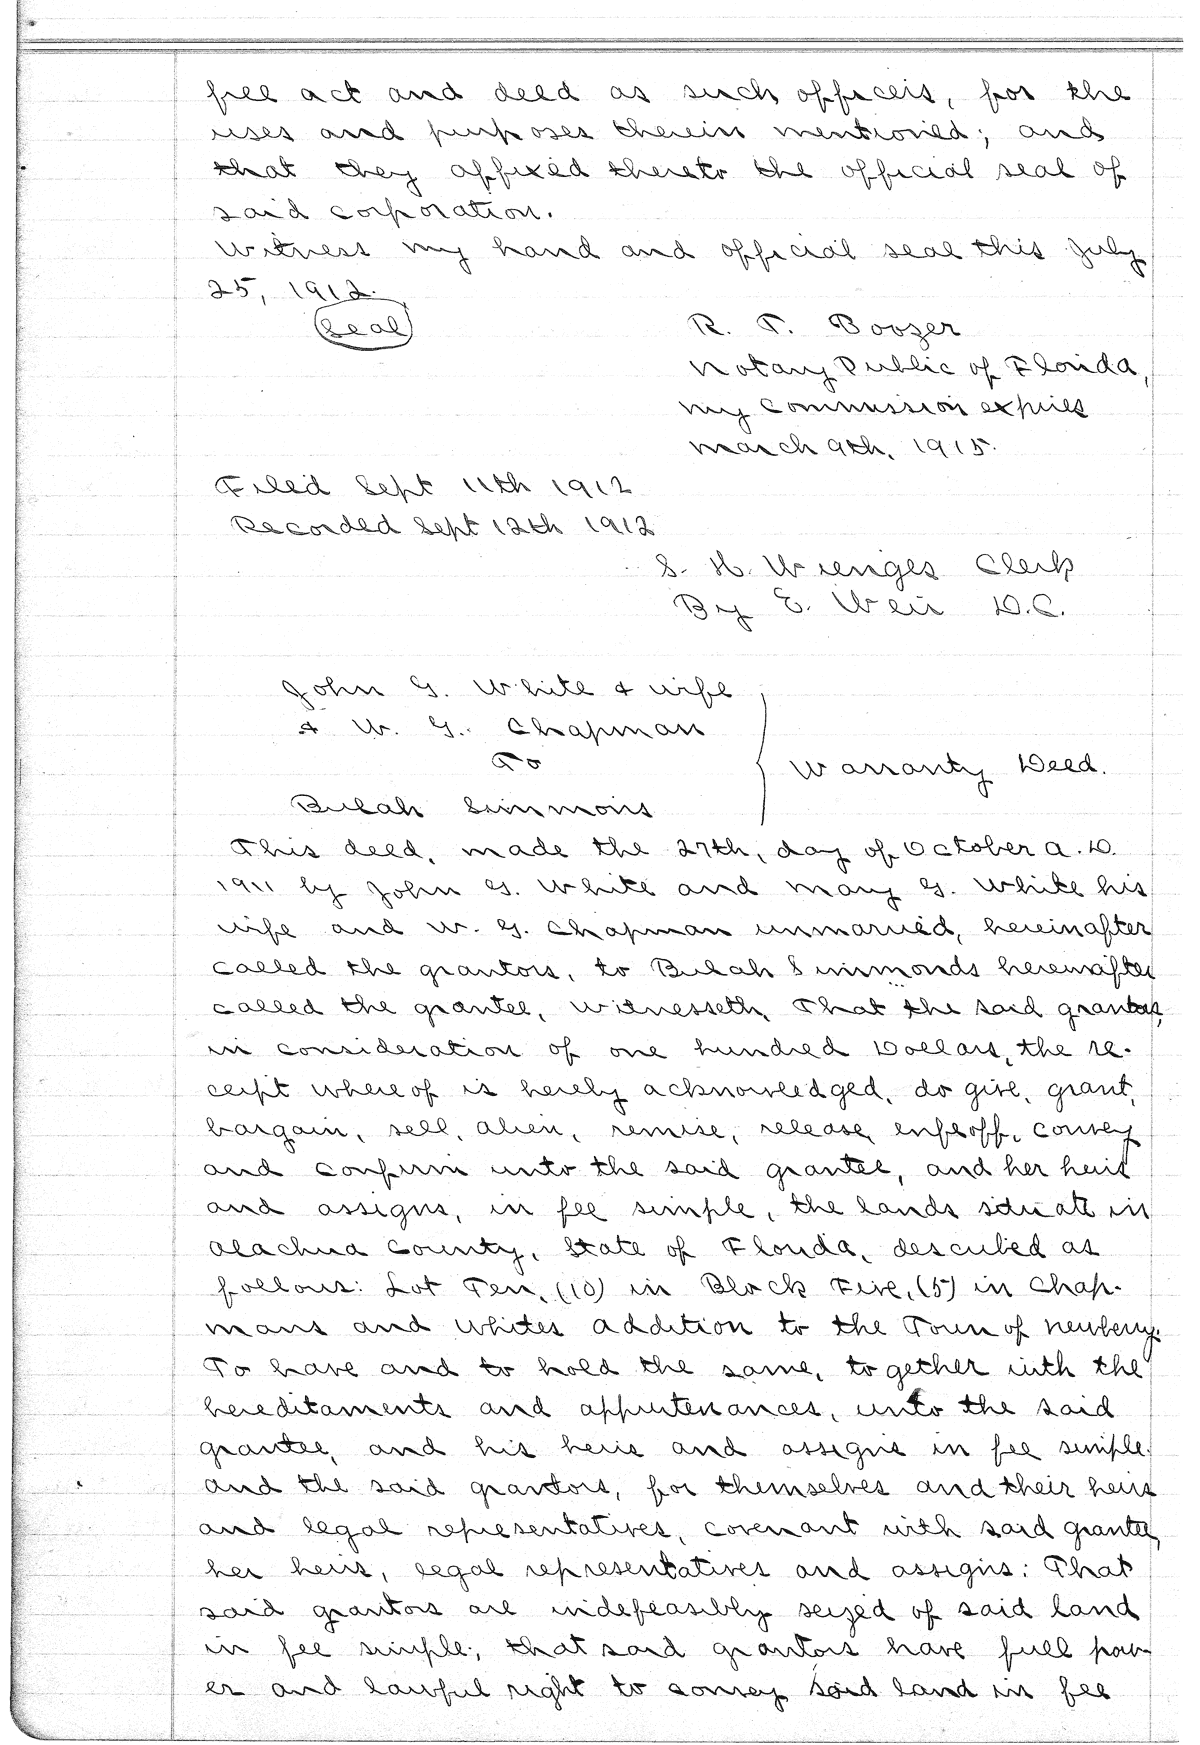 free act and deed as such officers, for the
uses and purposes therein mentioned; and
that they affixed thereto the official seal of
said corporation.
Witness my hand and official seal this July
25, 1912.
Seal
R. T. Boozer
Notary Public of Florida,
my commission expires
March 9th, 1915.
Filed Sept 11th 1912
Recorded Sept 12th 1912
S. H. Wienges Clerk
By E. Weir D.C.
John G. White & wife
& W. G. Chapman
To
Warranty Deed.
Bulah Simmons
This deed, made the 27th, day of October A.D.
1911 by John G. White and Mary G. White his
wife and W. G. Chapman unmarried, hereinafter
called the grantors, to Bulah Simmonds hereinafter
called the grantee, Witnesseth, That the said grantors,
in consideration of one hundred Dollars, the re-
ceipt whereof is hereby acknowledged, do give, grant,
bargain, sell, alien, remise, release, enfeoff, convey
and confirm unto the said grantee, and her heirs
and assigns, in fee simple, the lands situate in
Alachua County, State of Florida, described as
follows: Lot Ten, (10) in Block Five, (5) in Chap-
mans and Whites addition to the Town of Newberry.
To have and to hold the same, together with the
hereditaments and appurtenances, unto the said
grantee, and his heirs and assigns in fee simple.
And the said grantors, for themselves and their heirs
and legal representatives, covenant with said grantee,
her heirs, legal representatives and assigns: That
said grantors are indefeasibly seized of said land
in fee simple; that said grantors have full pow-
er and lawful right to convey said land in fee